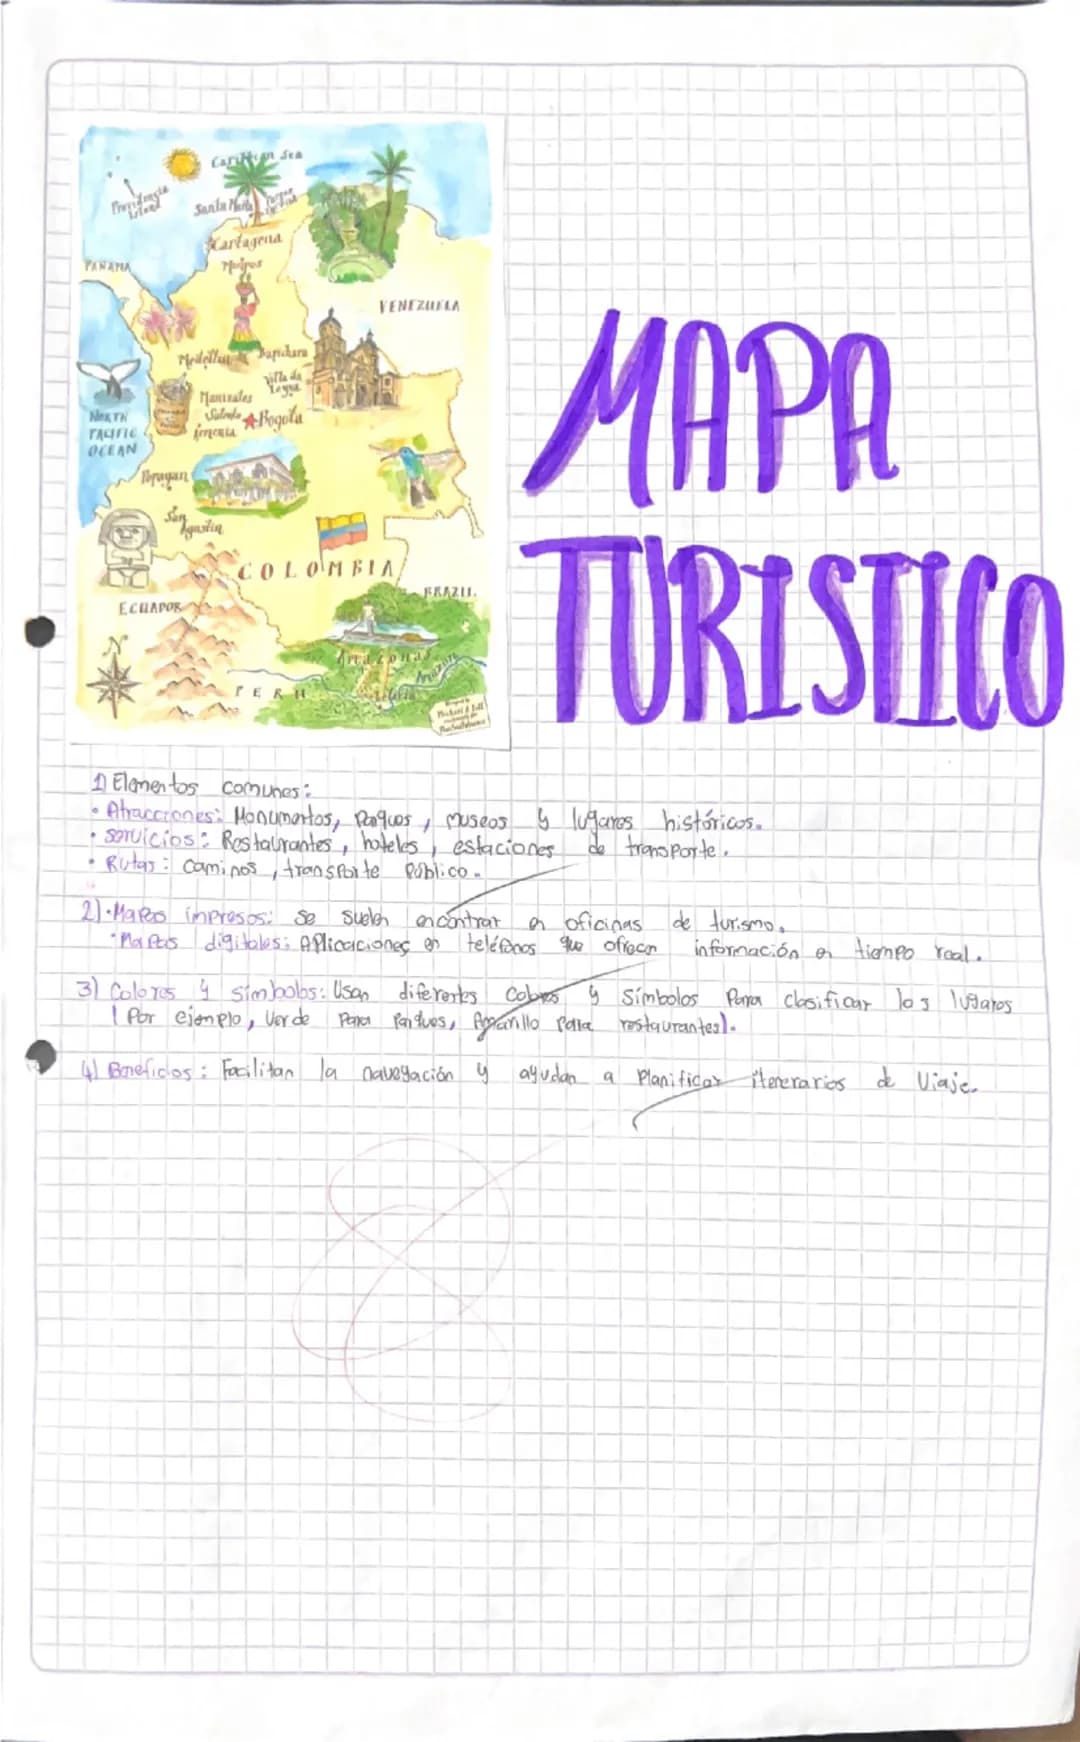 Caribbean Sea
Providencia Island
Santa Marta
Cartagena
Mompos
PANAMA
VENEZUELA
Medellin
Barichara
Villa de Leyva
Manizales
Salento
Armenia
Bogota
NORTH
PACIFIC
OCEAN
Popayan
San Agustin
COLOMBIA
ECUADOR
BRAZIL
N
Amazonas
PERU
MAPA
TURISTICO
1) Elementos comunes:
• Atracciones: Monumentos, Parques, museos y lugares históricos.
• servicios: Restaurantes, hoteles, estaciones de transporte.
• Rutas: caminos, transporte Público.
2) • Mapas impresos: se suelen encontrar en oficinas de turismo.
• Mapas digitales: Aplicaciones en teléfonos que ofrecen información en tiempo real.
3) Colores y símbolos: Usan diferentes colores y símbolos Para clasificar los lugares
(Por ejemplo, Verde Para Parques, Amarillo Para restaurantes).
4) Beneficios: Facilitan la navegación y ayudan a Planificar itererarios de Viaje.